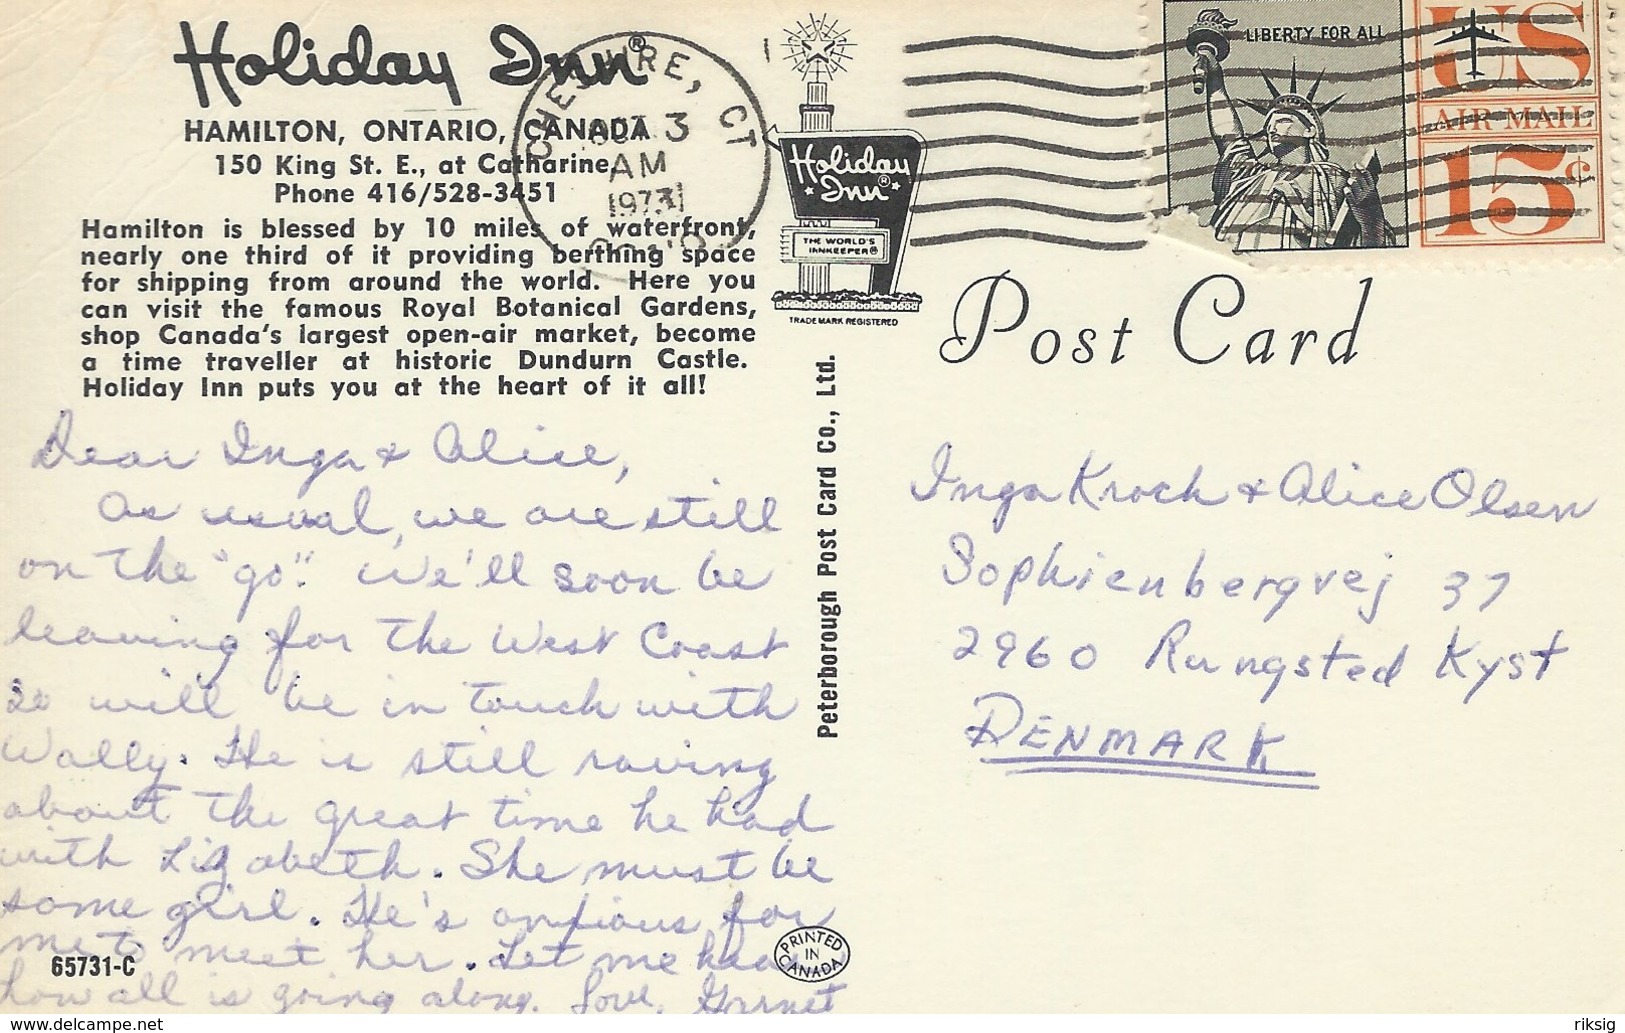 Holiday Inn®
HAMILTON, ONTARIO, CANADA
150 King St. E., at Catharine
Phone 416/528-3451
Hamilton is blessed by 10 miles of waterfront,
nearly one third of it providing berthing space
for shipping from around the world. Here you
can visit the famous Royal Botanical Gardens,
shop Canada's largest open-air market, become
a time traveller at historic Dundurn Castle.
Holiday Inn puts you at the heart of it all!
CHESHIRE, CT
3
AM
1973
Holiday
Inn®
THE WORLD'S
INNKEEPER®
TRADE MARK REGISTERED
LIBERTY FOR ALL
US
AIR MAIL
15¢
Post Card
Peterborough Post Card Co., Ltd.
Dear Inga & Alice,
As usual, we are still
on the "go". We'll soon be
leaving for the West Coast
so will be in touch with
Wally. He is still raving
about the great time he had
with Lizabeth. She must be
some girl. He's anxious for
me to meet her. Let me hear
how all is going along. Love, Garnet
65731-C
PRINTED
IN
CANADA
Inga Kroch & Alice Olsen
Sophienbergvej 37
2960 Rungsted Kyst
DENMARK
www.delcampe.net
riksig